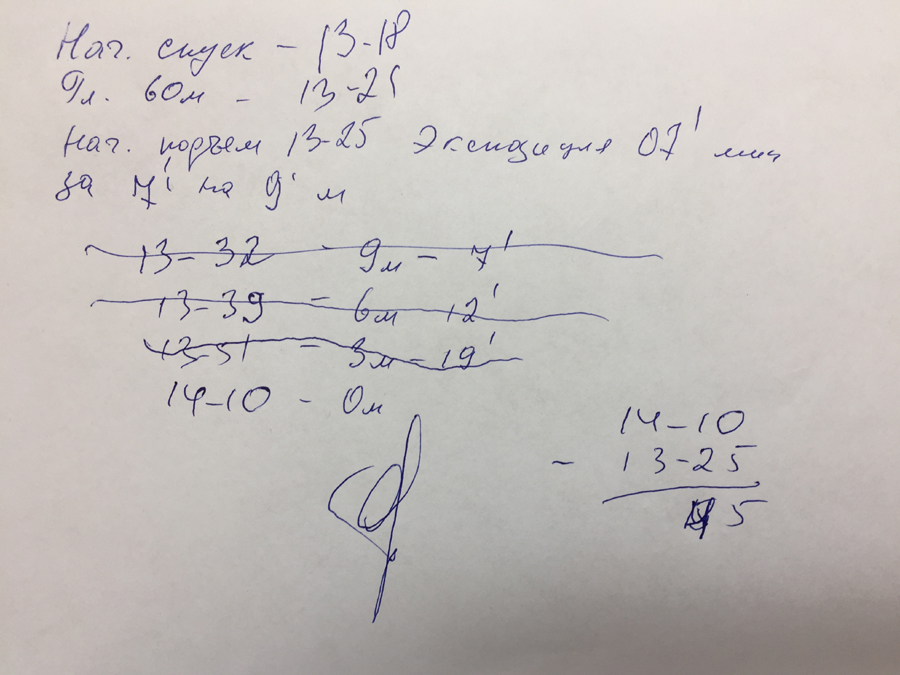 Нач. спуск – 13-18
Гл. 60м – 13-21
Нач. подъем 13-25 Экспозиция 07' мин
за 7' на 9' м
13-32 – 9м – 7'
13-39 – 6м 12'
13-51 – 3м – 19'
14-10 – 0м
14-10
– 13-25
45